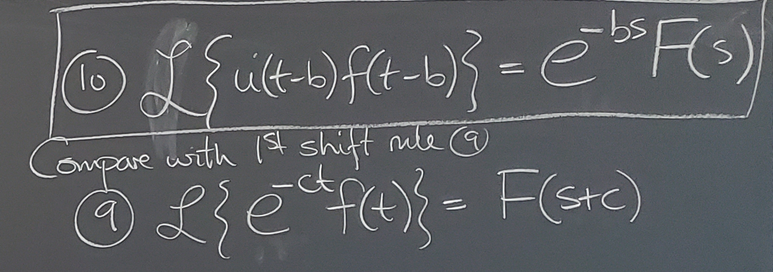 ⑩ ℒ{u(t-b)f(t-b)} = e^{-bs} F(s)
Compare with 1st shift rule ⑨
⑨ ℒ{e^{-ct}f(t)} = F(s+c)